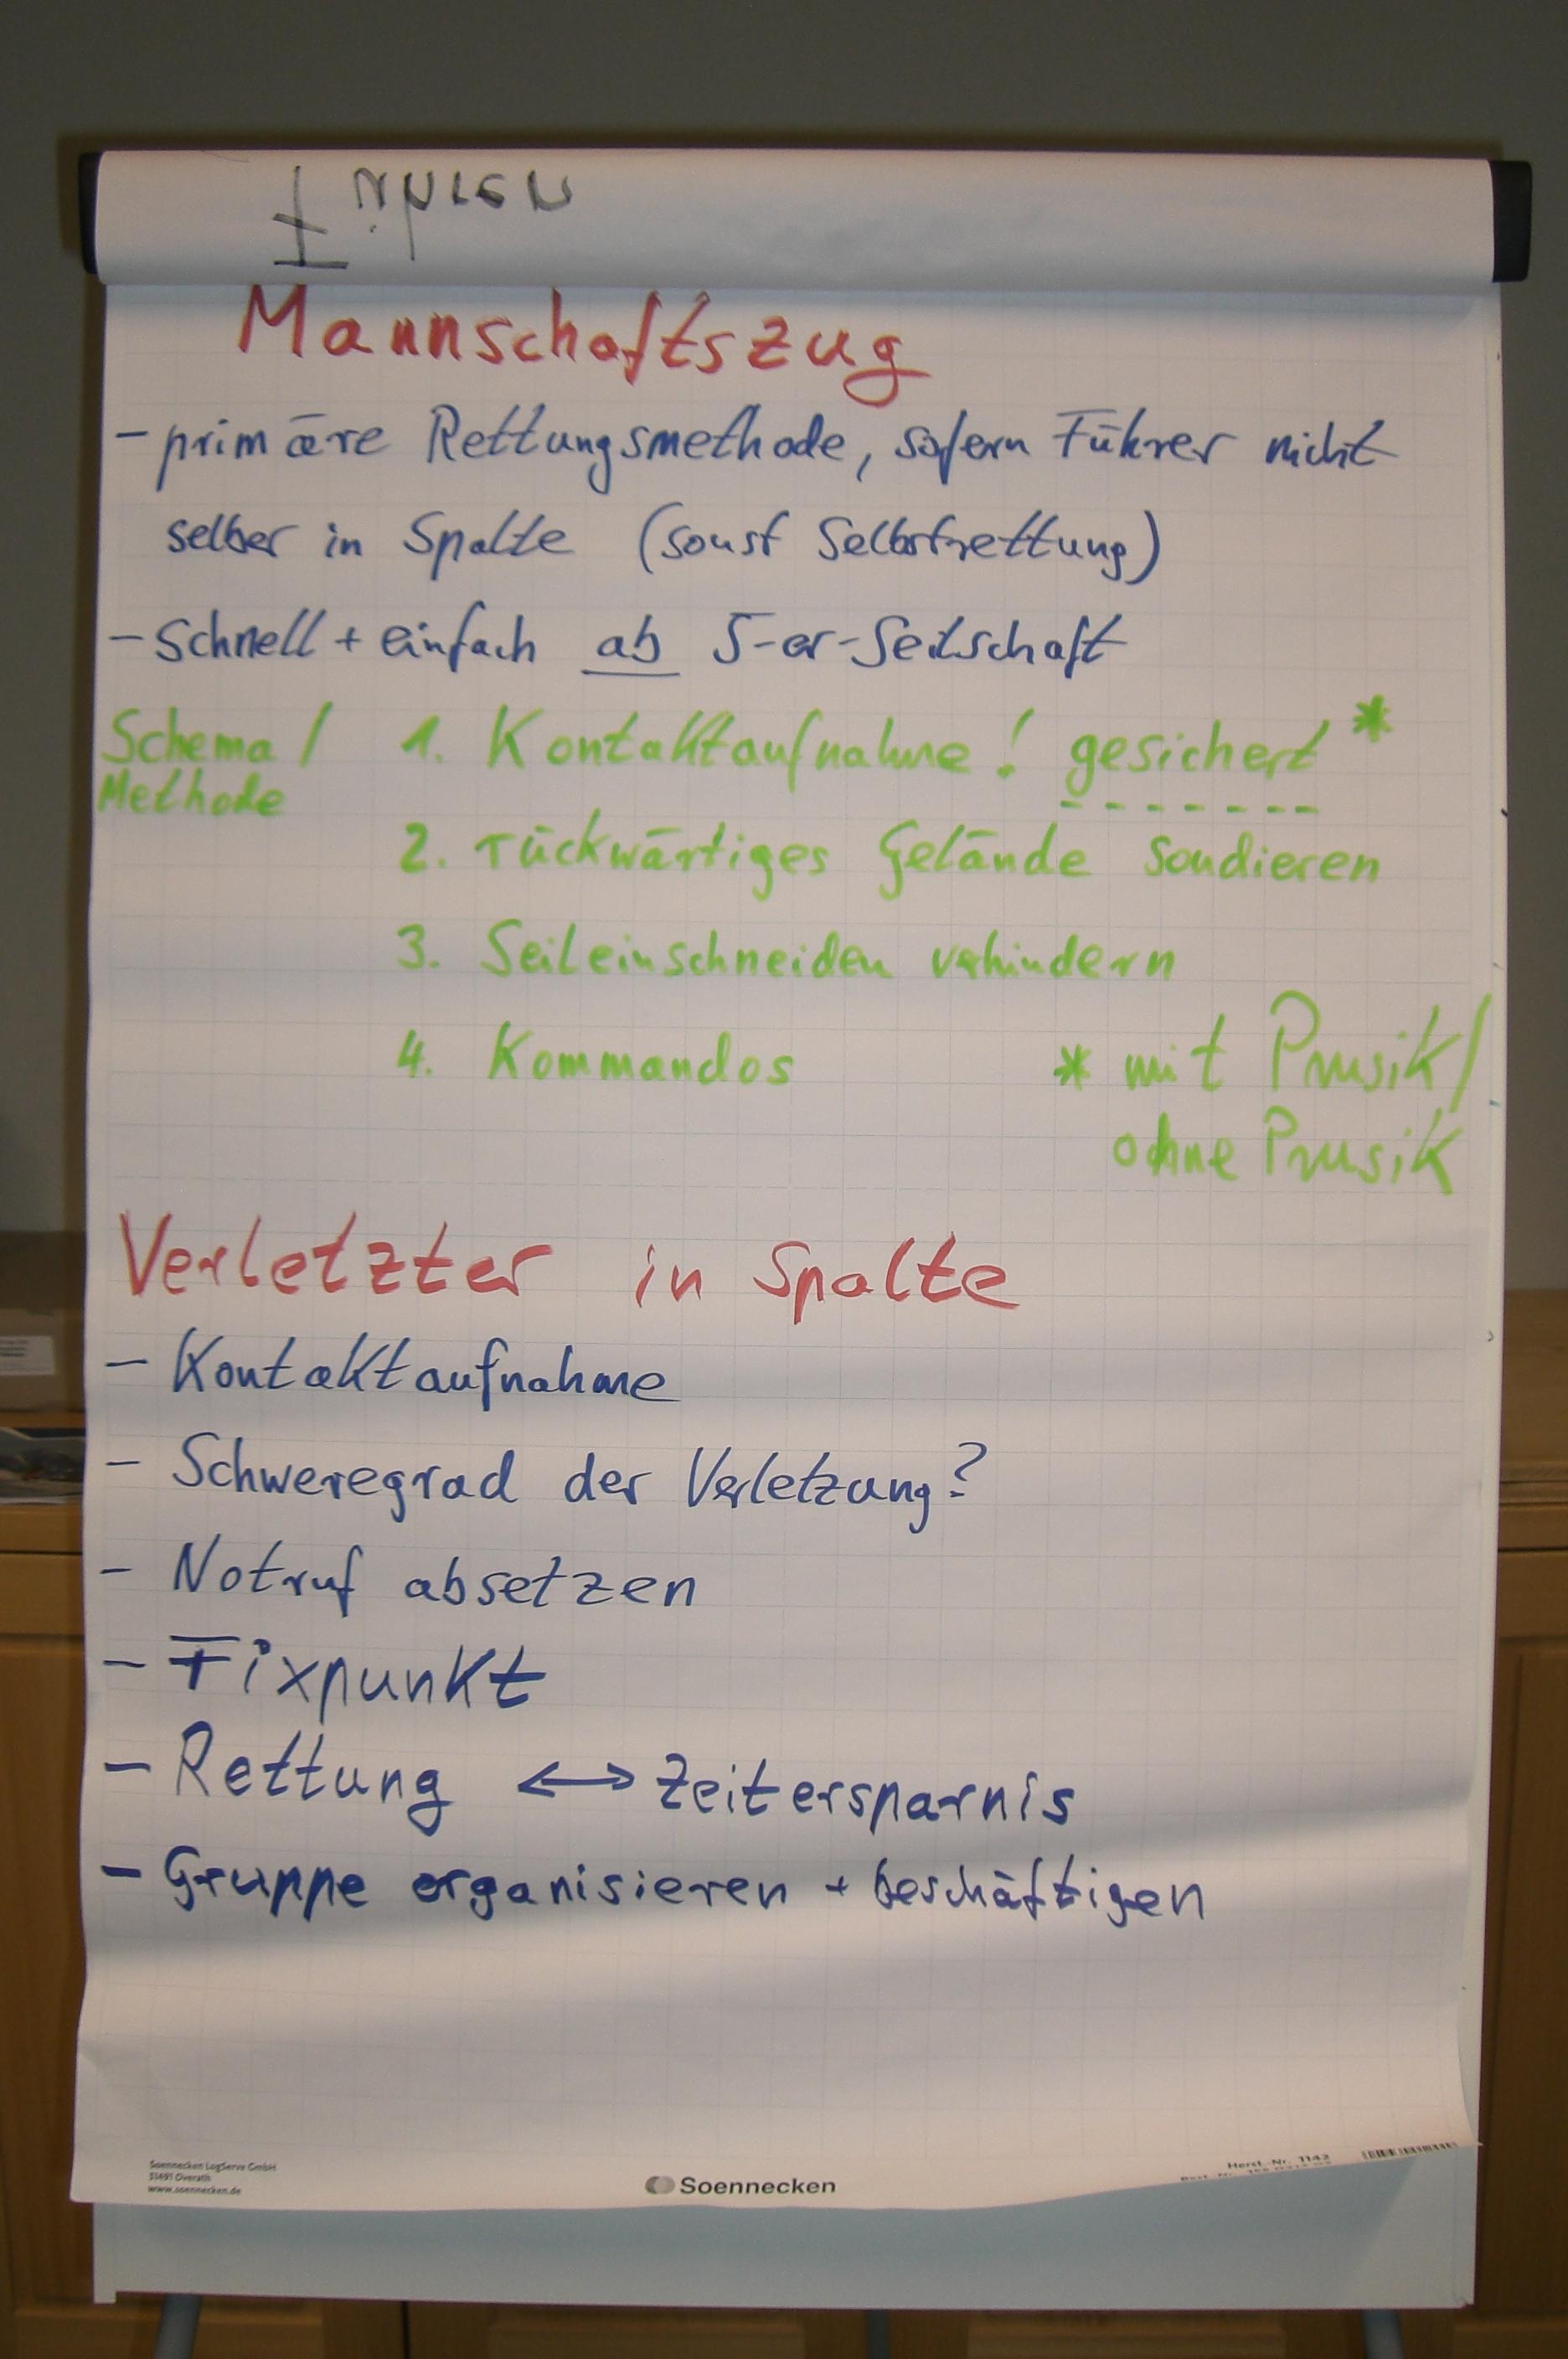 Mannschaftszug
- primäre Rettungsmethode, sofern Führer nicht
selber in Spalte (sonst Selbstrettung)
- Schnell + einfach ab 5-er-Seilschaft
Schema / 1. Kontaktaufnahme! gesichert *
Methode
2. rückwärtiges Gelände sondieren
3. Seileinschneiden verhindern
4. Kommandos * mit Prusik /
ohne Prusik
Verletzter in Spalte
- Kontaktaufnahme
- Schweregrad der Verletzung?
- Notruf absetzen
- Fixpunkt
- Rettung ↔ Zeitersparnis
- Gruppe organisieren + beschäftigen
Soennecken LogServe GmbH
51491 Overath
www.soennecken.de
Soennecken
Herst.-Nr. 1142